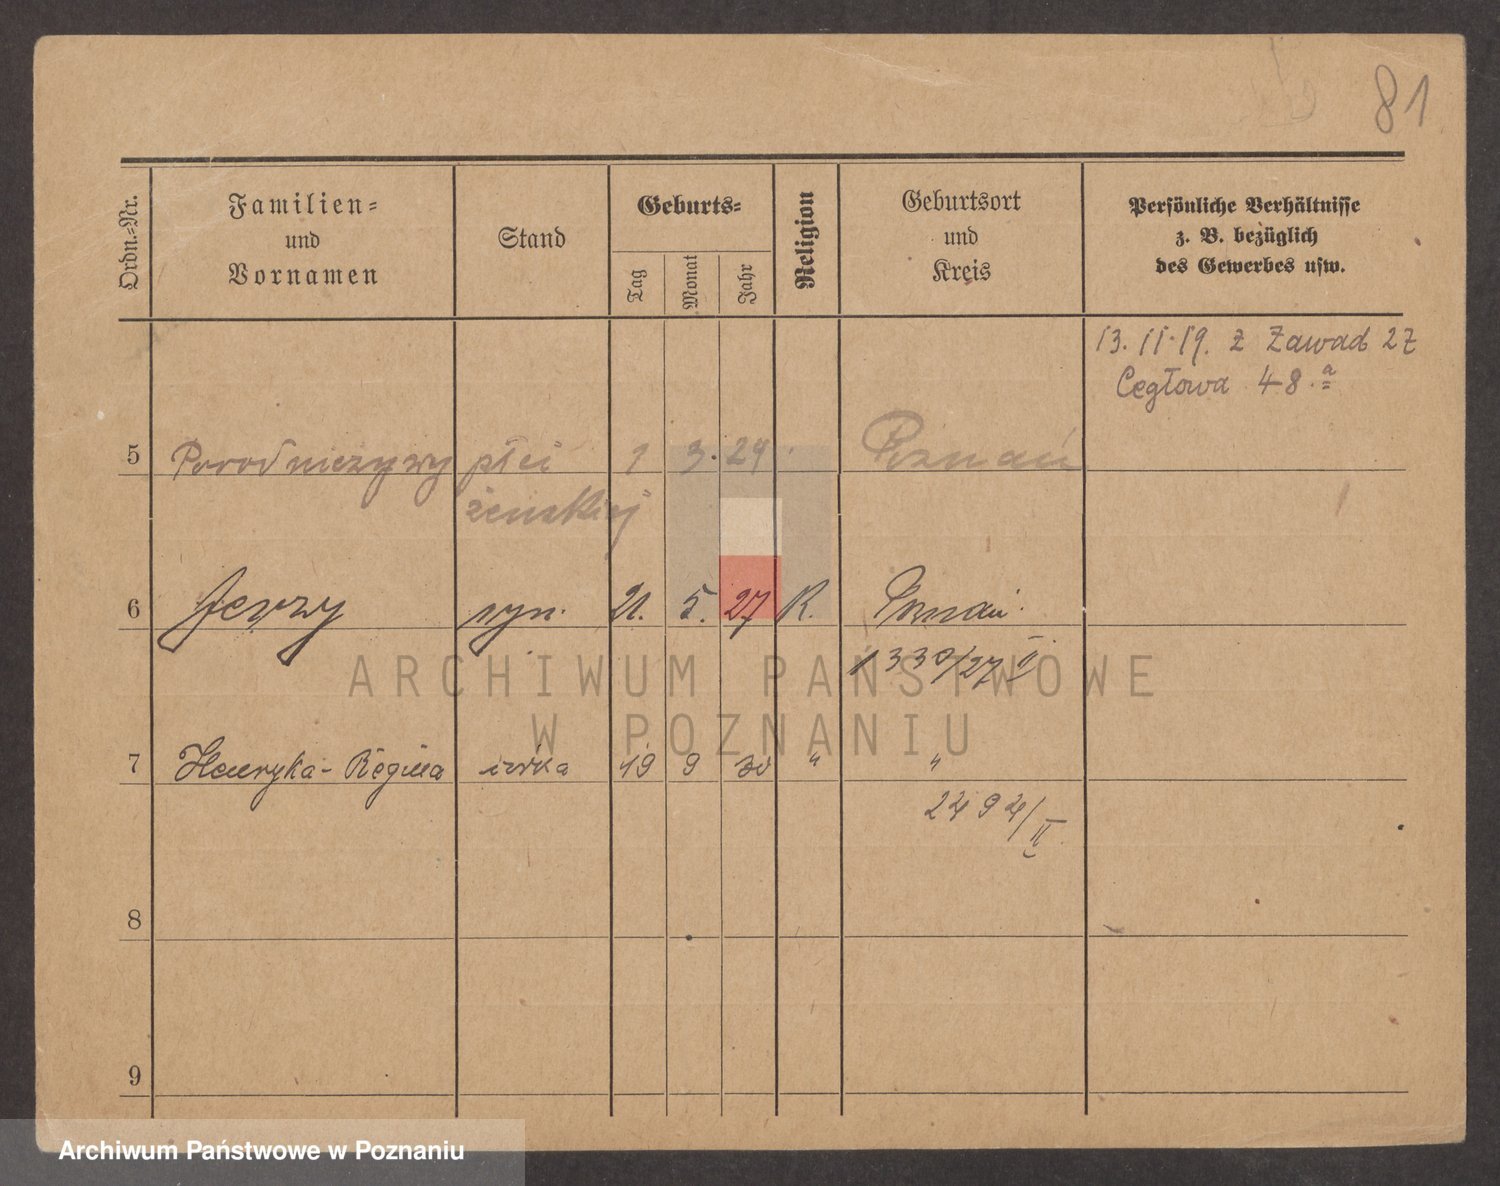 81
Ordn.-Nr.
Familien-
und
Vornamen
Stand
Geburts-
Tag
Monat
Jahr
Religion
Geburtsort
und
Kreis
Persönliche Verhältnisse
z. B. bezüglich
des Gewerbes usw.
13. 11. 19. z Zawad 27
Cegłowa 48.a
5 Poród nieżywy płci 1 3. 24. Poznań
żeńskiej
6 Jerzy syn. 21. 5. 27 R. Poznań.
1330/27 II.
7 Henryka-Regina córka 19 9 30 " "
2494/II.
8
9
ARCHIWUM PAŃSTWOWE
W POZNANIU
Archiwum Państwowe w Poznaniu